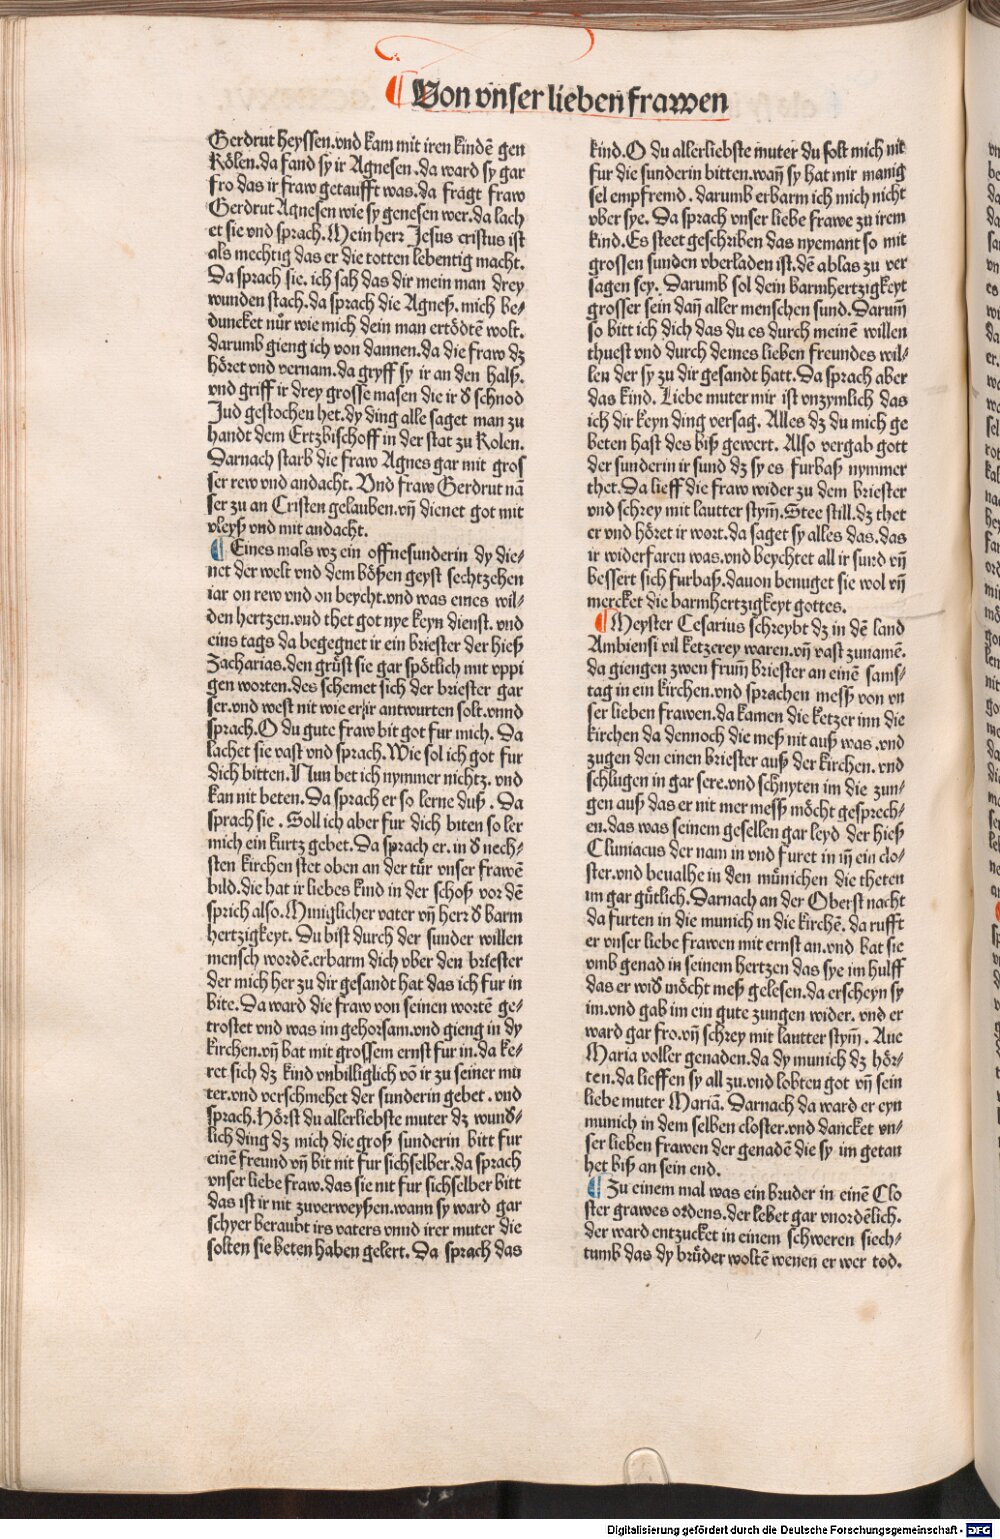 ¶ Von vnser lieben frawen
Gerdrut heyssen.vnd kam mit iren kindē gen
Kölen.da fand sy ir Agnesen.da ward sy gar
fro das ir fraw getaufft was.da fragt fraw
Gerdrut Agnesen wie sy genesen wer.da lach
et sie vnd sprach.Mein herr Jesus cristus ist
als mechtig das er die totten lebentig macht.
Da sprach sie.ich sah das dir mein man drey
wunden stach.da sprach die Agneß.mich be⸗
duncket nůr wie mich dein man ertödtē wolt.
darumb gieng ich von dannen.da die fraw dz
höret vnd vernam.da gryff sy ir an den halß.
vnd griff ir drey grosse masen die ir d̕ schnod
Jud gestochen het.dy ding alle saget man zu
handt dem Ertzbischoff in der stat zu Kolen.
Darnach starb die fraw Agnes gar mit gros
ser rew vnd andacht. Vnd fraw Gerdrut nā
ser zu an Cristen gelauben.vn̄ dienet got mit
vleyß vnd mit andacht.
¶ Eines mals wz ein offnesunderin dy die⸗
net der welt vnd dem bößen geyst sechtzehen
iar on rew vnd on beycht.vnd was eines wil⸗
den hertzen.vnd thet got nye keyn dienst.vnd
eins tags da begegnet ir ein briester der hieß
Zacharias.den grůst sie gar spötlich mit vppi
gen worten.des schemet sich der briester gar
ser.vnd west nit wie er ir antwurten solt.vnnd
sprach.O du gute fraw bit got fur mich. Da
lachet sie vast vnd sprach.Wie sol ich got fur
dich bitten.Nun bet ich nymmer nichtz.vnd
kan nit beten.Da sprach er so lerne duß. Da
sprach sie. Soll ich aber fur dich biten so ler
mich ein kurtz gebet.Da sprach er.in d̕ nech⸗
sten kirchen stet oben an der tůr vnser frawē
bild.die hat ir liebes kind in der schoß vor dē
sprich also.Miniglicher vater vn̄ herr d̕ barm
hertzigkeyt. Du bist durch der sunder willen
mensch wordē.erbarm dich vber den briester
der mich her zu dir gesandt hat das ich fur in
bite.Da ward die fraw von seinen wortē ge⸗
trostet vnd was im gehorsam.vnd gieng in dy
kirchen.vn̄ bat mit grossem ernst fur in.da ke⸗
ret sich dz kind vnbilliglich vō ir zu seiner mu
ter.vnd verschmehet der sunderin gebet.vnd
sprach.Hörst du allerliebste muter dz wund̕⸗
lich ding dz mich die groß sunderin bitt fur
einē freund vn̄ bit nit fur sich selber.da sprach
vnser liebe fraw.das sie nit fur sich selber bitt
das ist ir nit zuverweyßen.wann sy ward gar
schyer beraubt irs vaters vnnd irer muter die
solten sie beten haben gelert. Da sprach das
kind.O du allerliebste muter du solt mich nit
fur die sunderin bitten.wan̄ sy hat mir manig
sel empfremd. darumb erbarm ich mich nicht
vber sye. Da sprach vnser liebe frawe zu irem
kind.Es steet geschriben das nyemant so mit
grossen sunden vberladen ist.dē ablas zu ver
sagen sey. Darumb sol dein barmhertzigkeyt
grosser sein dan̄ aller menschen sund.Darum̄
so bitt ich dich das du es durch meinē willen
thuest vnd durch deines lieben freundes wil⸗
len der sy zu dir gesandt hatt.Da sprach aber
das kind. Liebe muter mir ist vnzymlich das
ich dir keyn ding versag. Alles dz du mich ge
beten hast des biß gewert. Also vergab gott
der sunderin ir sund dz sy es furbaß nymmer
thet.Da lieff die fraw wider zu dem briester
vnd schrey mit lautter stym̄.Stee still.dz thet
er vnd höret ir wort.da saget sy alles das.das
ir widerfaren was.vnd beychtet all ir sund vn̄
bessert sich furbaß.dauon benuget sie wol vn̄
mercket die barmhertzigkeyt gottes.
¶ Meyster Cesarius schreybt dz in dē land
Ambiensi vil ketzerey waren.vn̄ vast zunamē.
da giengen zwen frum̄ briester an einē sams⸗
tag in ein kirchen.vnd sprachen messz von vn
ser lieben frawen.da kamen die ketzer inn die
kirchen da dennoch die meß nit auß was.vnd
zugen den einen briester auß der kirchen.vnd
schlugen in gar sere.vnd schnyten im die zun⸗
gen auß das er nit mer messz möcht gesprech⸗
en.das was seinem gesellen gar leyd der hieß
Cluniacus der nam in vnd furet in in̄ ein clo⸗
ster.vnd beualhe in den můnichen die theten
im gar gůtlich.Darnach an der Oberst nacht
da furten in die munich in die kirchē.da rufft
er vnser liebe frawen mit ernst an.vnd bat sie
vmb genad in seinem hertzen das sye im hulff
das er wid̕ möcht meß gelesen.da erscheyn sy
im.vnd gab im ein gute zungen wider.vnd er
ward gar fro.vn̄ schrey mit lautter stym̄. Aue
Maria voller genaden.da dy munich dz hör⸗
ten.da lieffen sy all zu.vnd lobten got vn̄ sein
liebe muter Mariā. Darnach da ward er eyn
munich in dem selben closter.vnd dancket vn⸗
ser lieben frawen der genadē die sy im getan
het biß an sein end.
¶ Zu einem mal was ein bruder in einē Clo
ster grawes ordens.der lebet gar vnordēlich.
der ward entzucket in einem schweren siech⸗
tumb das dy brůder woltē wenen er wer tod.
Digitalisierung gefördert durch die Deutsche Forschungsgemeinschaft - DFG